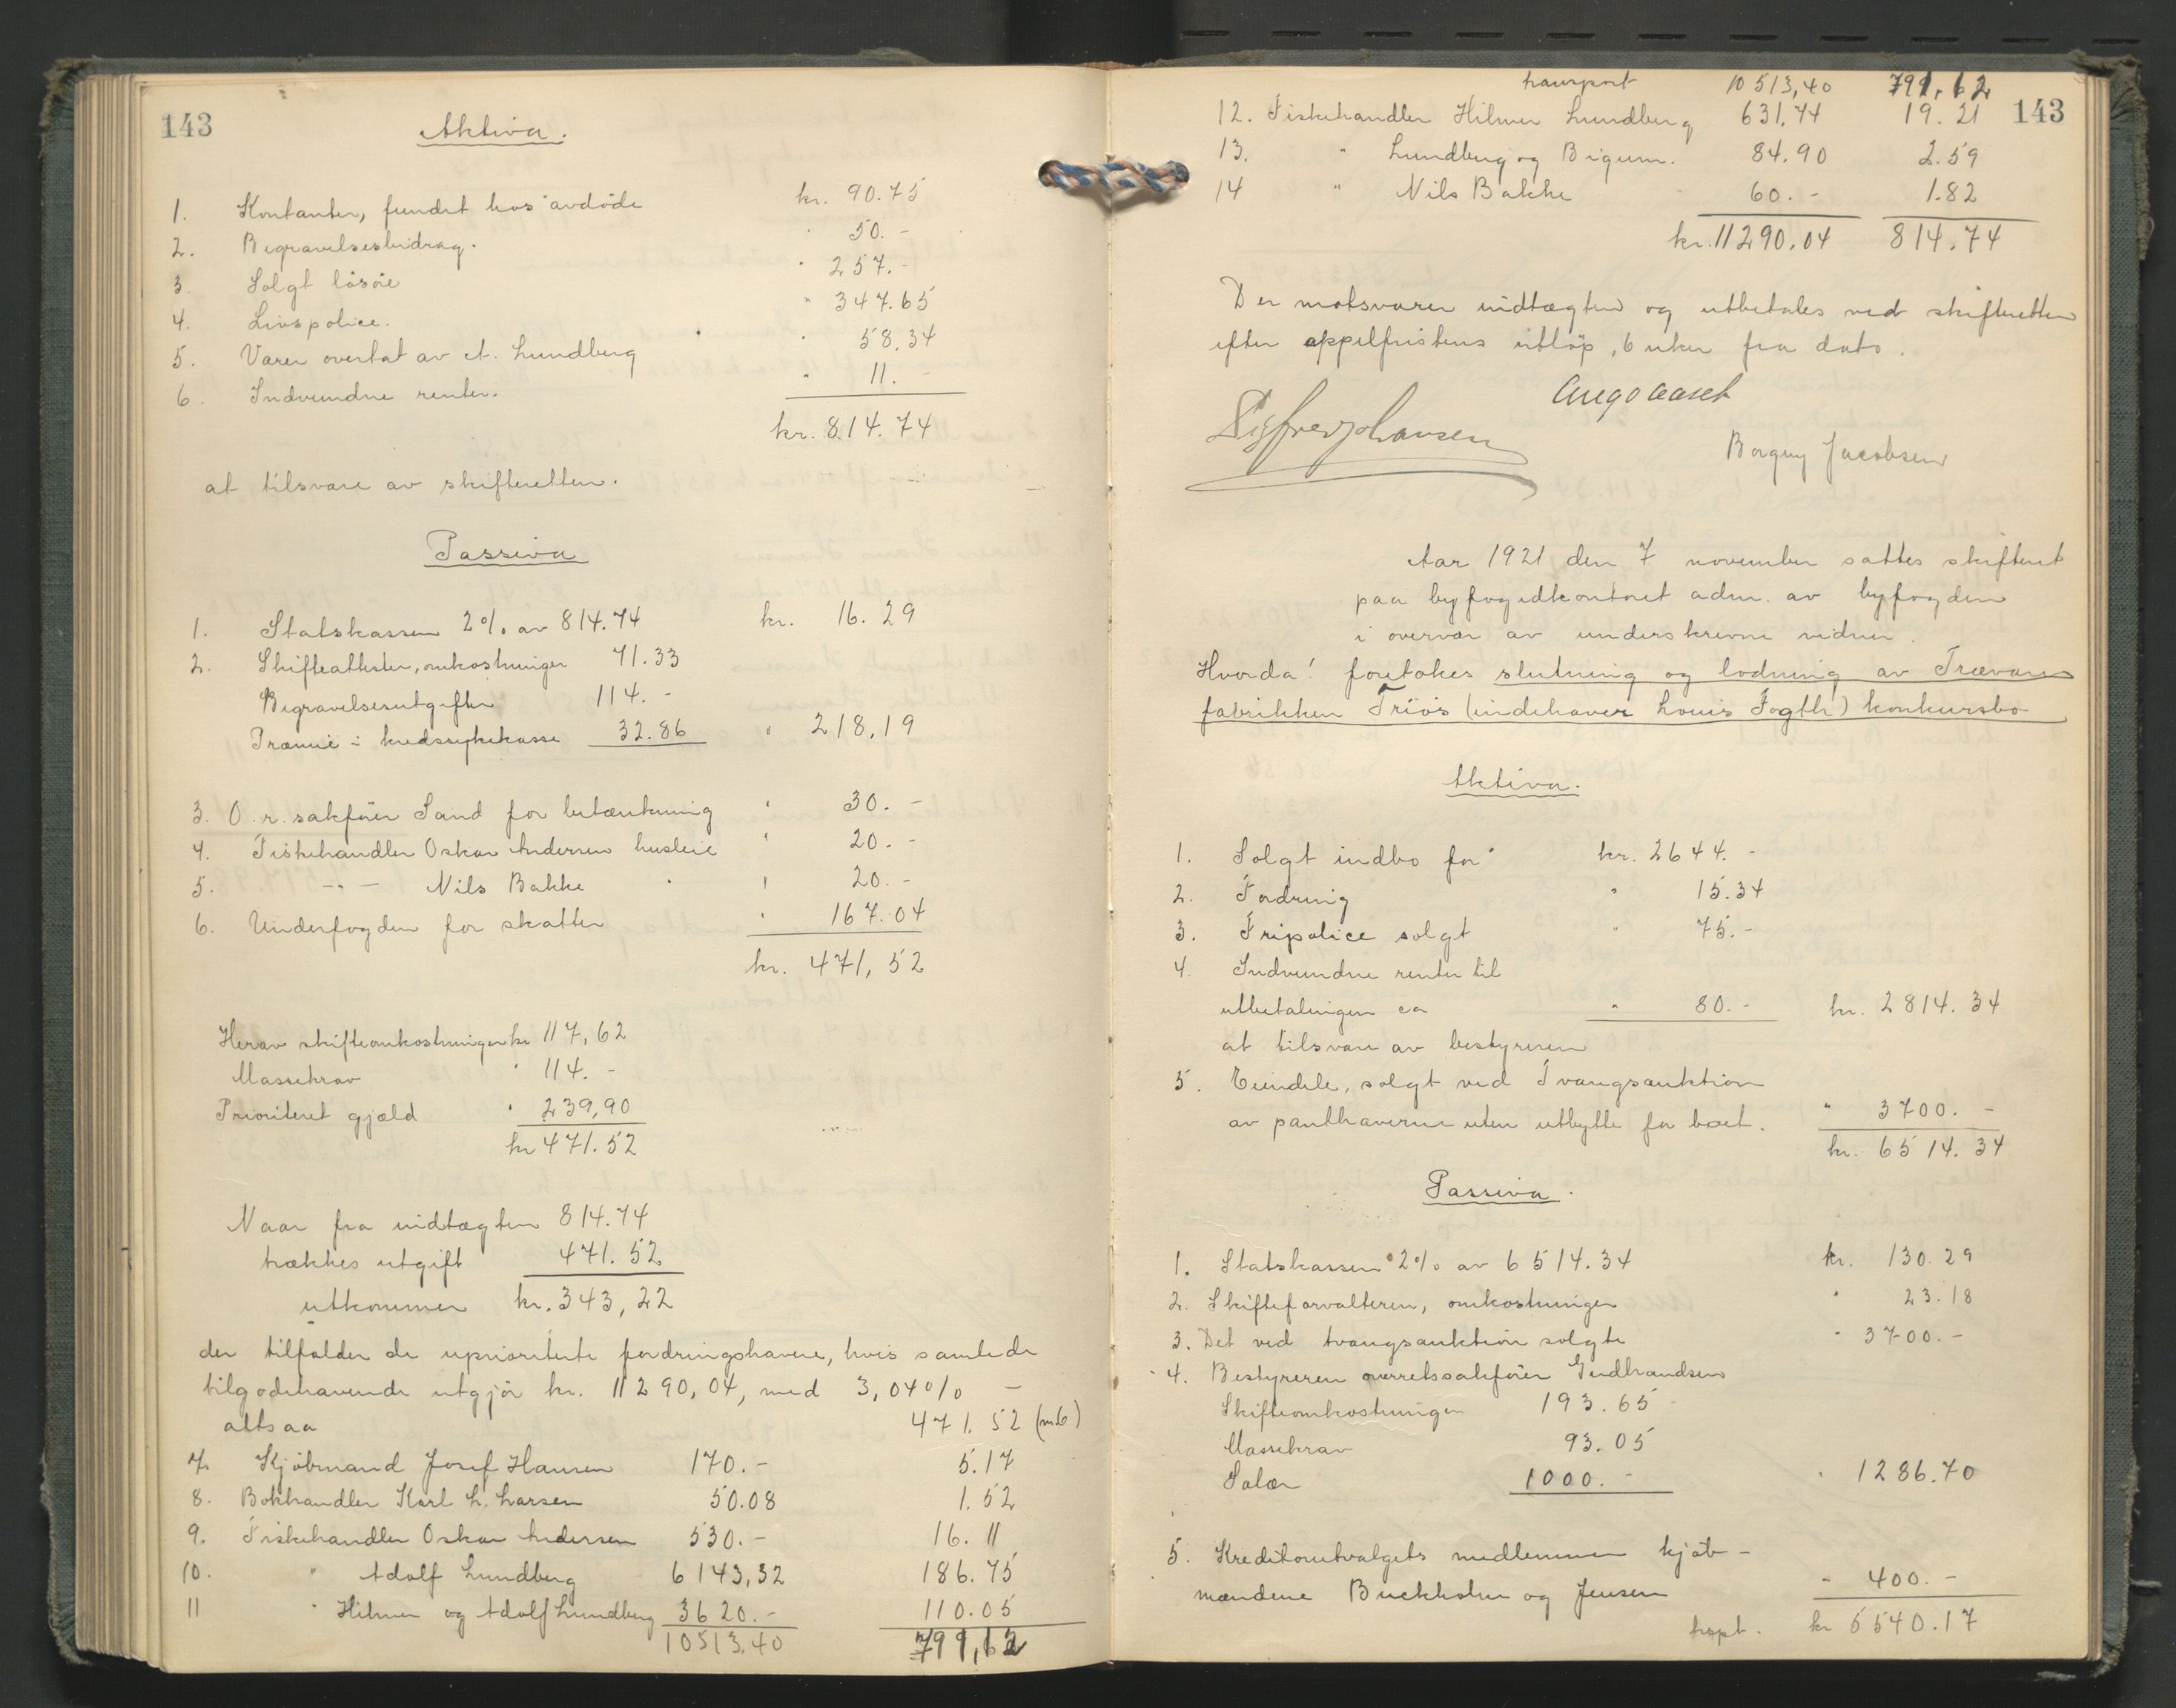 143
Aktiva.
1. Kontanter, fundet hos avdöde kr. 90.75
2. Begravelsesbidrag. " 50.-
3. Solgt lösöre " 257.-
4. Livspolice. " 347.65
5. Varer overtat av A. Lundberg " 58,34
6. Indvundne renter. " 11.-
kr. 814.74
at tilsvare av skifteretten.
Passiva
1. Statskassen 2% av 814.74 kr. 16.29
2. Skifteattester, omkostninger 71.33
Begravelsesutgifter 114.-
Præmie i kredssykekasse 32.86 " 218,19
3. O.r.sakförer Sand for betænkning " 30.-
4. Fiskehandler Oskar Andersen husleie " 20.-
5. -"- Nils Bakke " 20.-
6. Underfogden for skatter " 167.04
kr. 471,52
Herav skifteomkostninger kr 117,62
Massekrav " 114.-
Prioritert gjæld " 239,90
kr 471.52
Naar fra indtægten 814.74
trækkes utgift 471.52
utkommer kr. 343,22
der tilfalder de uprioriterte fordringshavere, hvis samlede
tilgodehavende utgjör kr. 11290,04, med 3,04% -
altsaa 471.52 (nr 6)
7. Kjöbmand Josef Hansen 170.- 5.17
8. Bokhandler Karl L. Larsen 50.08 1.52
9. Fiskehandler Oskar Andersen 530.- 16.11
10. " Adolf Lundberg 6143,32 186.75
11 " Hilmer og Adolf Lundberg 3620.- 110.05
10513,40 799,62
transport 10513,40 799,62
143
12. Fiskehandler Hilmer Lundberg 631,74 19.21
13. " Lundberg og Bigum. 84.90 2.59
14 " Nils Bakke 60.- 1.82
kr. 11290,04 814.74
Der motsvarer indtægten og utbetales ved skifteretten
efter appelfristens utlöp, 6 uker fra dato.
Aago Aaset
Sigfred Johansen
Borgny Jacobsen
Aar 1921 den 7 november sattes skifteret
paa byfogedkontoret adm. av byfogden
i overvær av underskrevne vidner.
Hvorda! foretokes slutning og lodning av Trævare
fabrikken Triös (indehaver Louis Fogth) konkursbo
Aktiva.
1. Solgt indbo for kr. 2644.-
2. Fordring " 15.34
3. Fripolice solgt " 75.-
4. Indvundne renter til
utbetalingen ca " 80.- kr. 2814.34
at tilsvare av bestyreren
5. Eiendele, solgt ved Tvangsauktion
av panthaverne uten utbytte for boet. " 3700.-
kr. 6514.34
Passiva.
1. Statskassen 2% av 6514.34 kr. 130.29
2. Skifteforvalteren, omkostninger " 23.18
3. Det ved tvangsauktion solgte " 3700.-
4. Bestyreren overretssakförer Gudbrandsen
Skifteomkostninger 193.65
Massekrav 93.05
Salær 1000.- " 1286.70
5. Kreditorutvalgets medlemmer kjöb-
mændene Buckholm og Jensen " 400.-
trspt. kr 5540.17